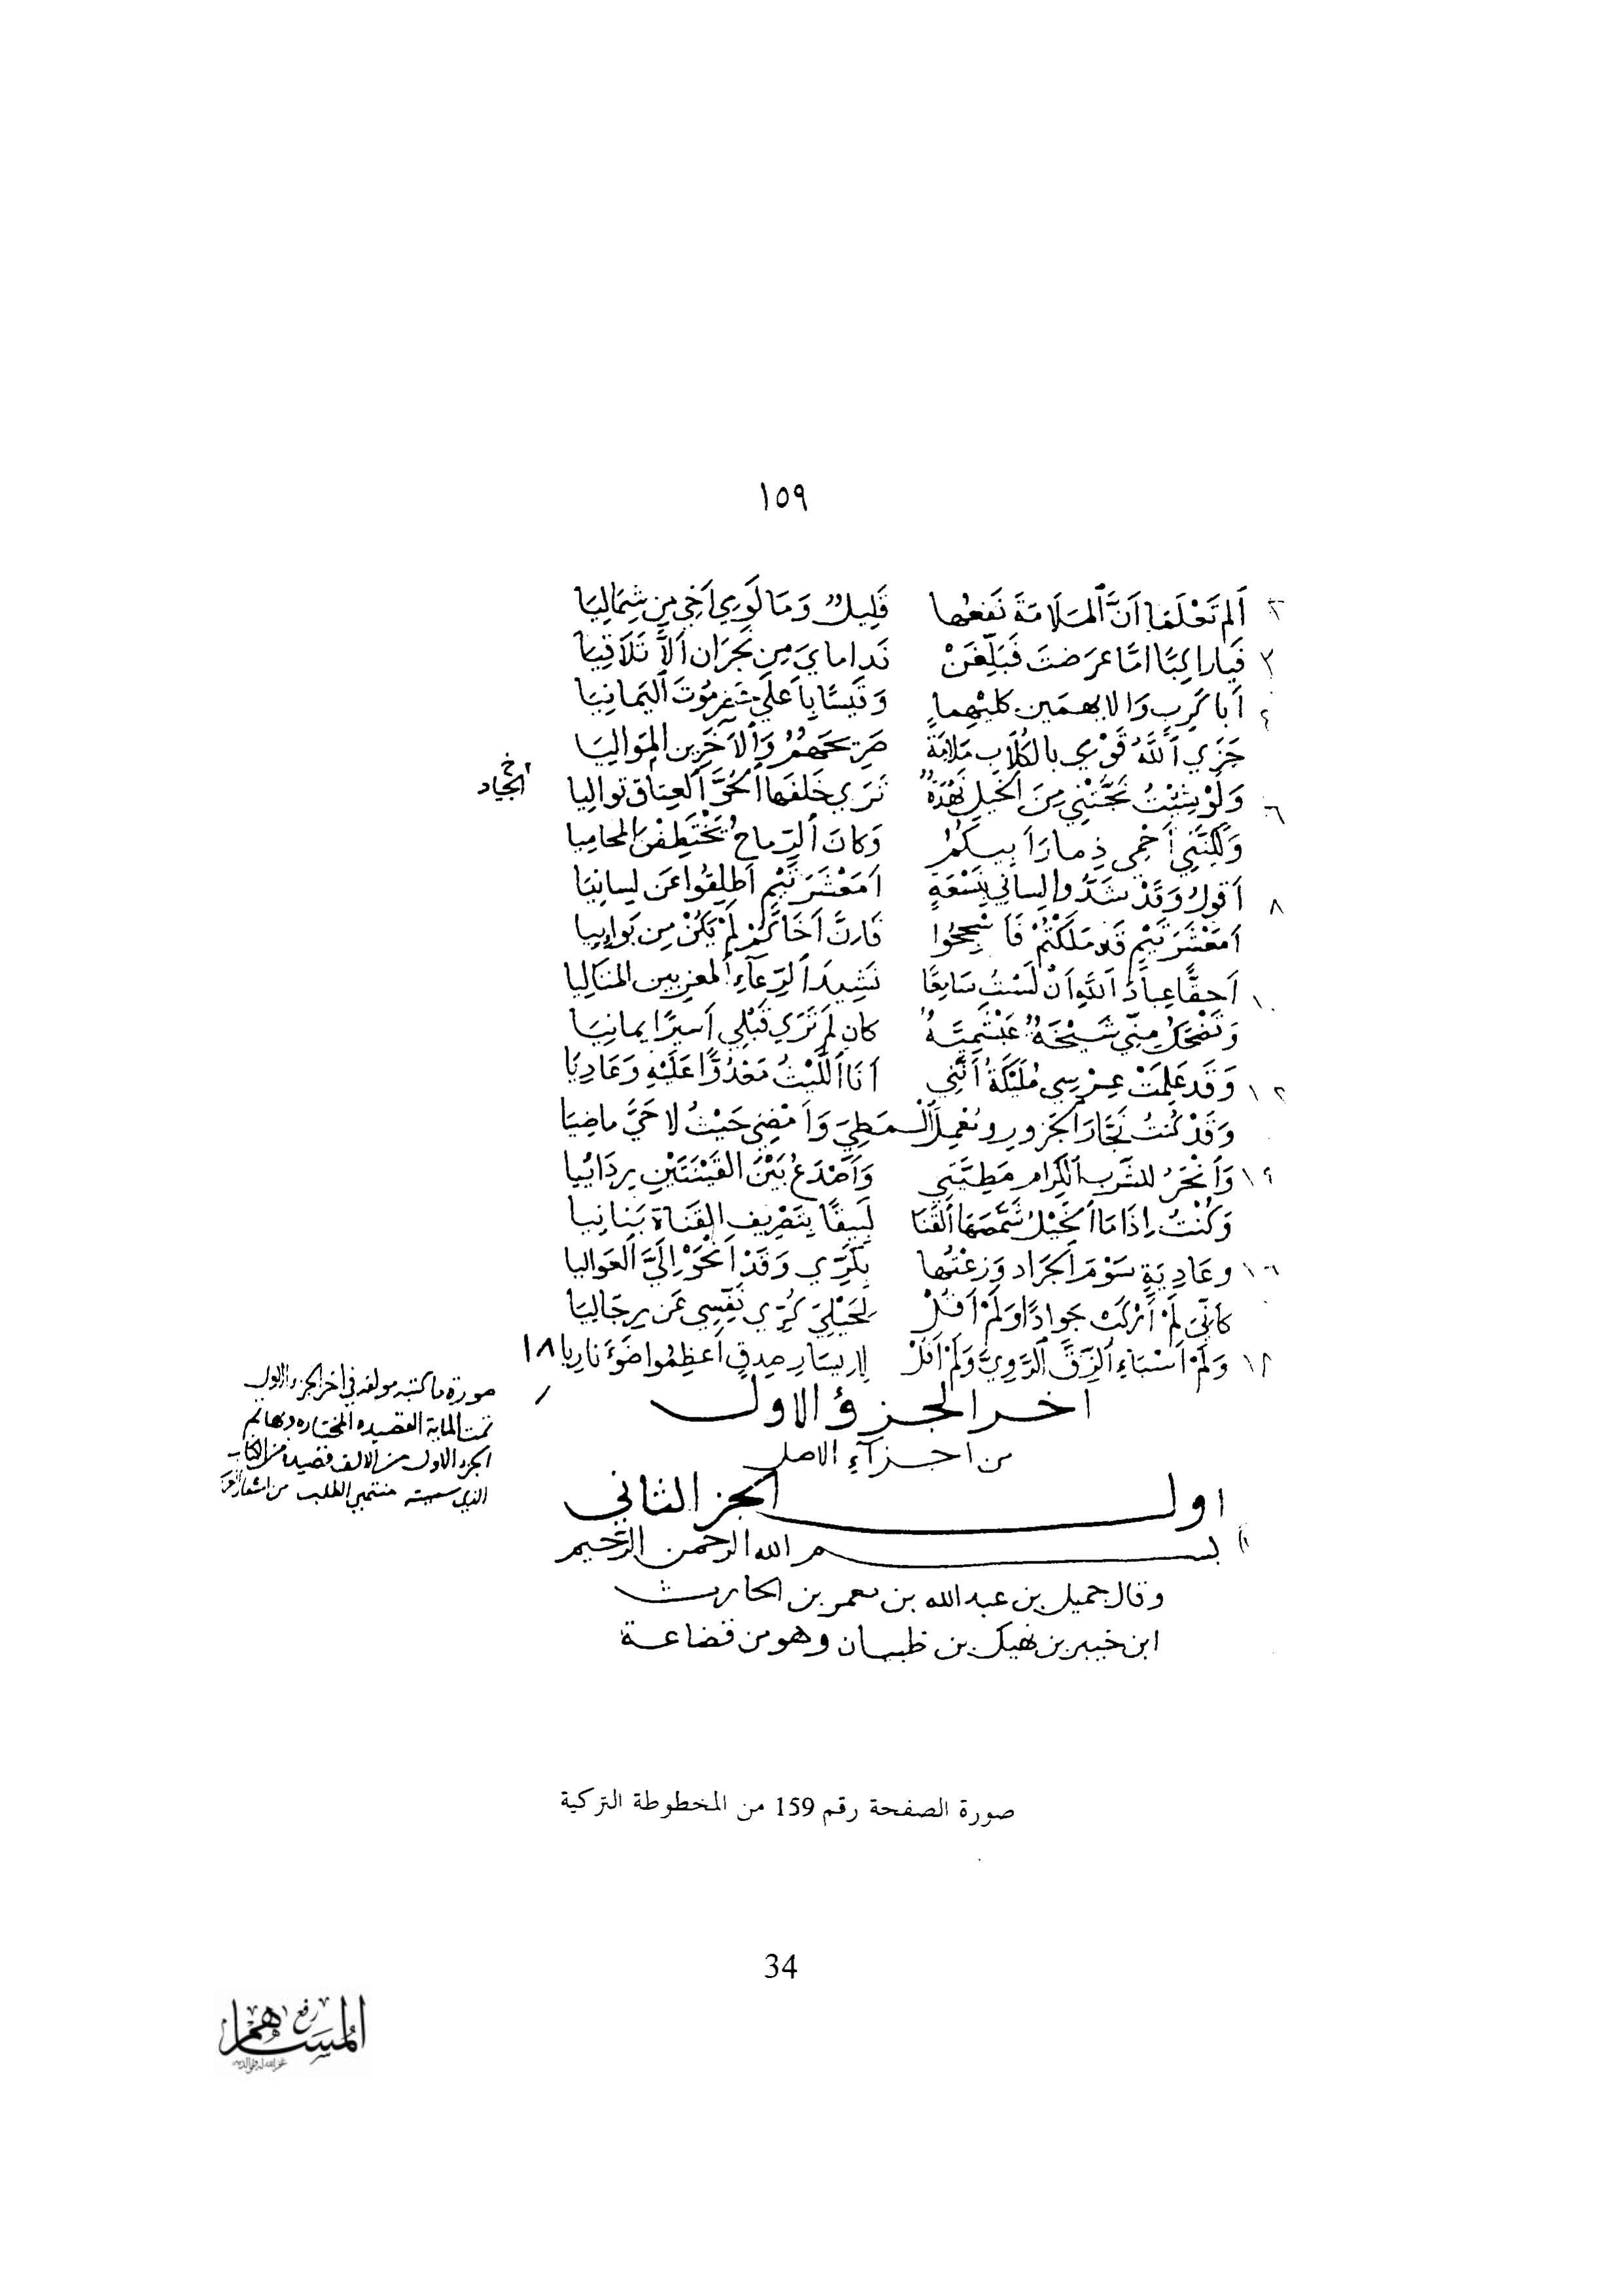 ١٥٩
٢ أَلَمْ تَعْلَمَا أَنَّ الْمَلَامَةَ نَفْعُهَا قَلِيلٌ وَمَا لَوْمِي أَخِي مِن شِمَالِيَا
٣ فَيَا رَاكِبًا امَّا عَرَضتَ فَبَلِّغَنْ نَدامايَ مِن نَجْرَانَ أَلَّا تَلَاقِيَا
٤ أَبَا كَرِبٍ وَالايهمَين كليْهِما وَقَيسًا بِأَعلَى حَضْرَمُوتَ الْيَمانِيَا
جَزَى اللهُ قَوْمِي بالكُلَابِ مَلَامَةً صَرِيحَهُمُ وَالآخَرِين المَوَالِيَا
٦ وَلَوْ شِئْتُ نَجَّتْنِي مِنَ الْخَيلِ نَهْدَةٌ تَرَى خَلفَهَا الْحُوَّ الْعِتَاقَ تَوالِيا
الجياد خ
وَلَكِنَّنِي أَحْمِى ذِمارَ أَبِيكُمُ وَكانَ الرِّماحُ يَخْتَطِفْنَ المحامِيا
٨ أَقولُ وَقَدْ شَدُّوا لِسَاني بِنِسْعَةٍ أَمَعْشَرَ تَيْمٍ أَطلِقُوا عَن لِسانِيَا
أَمَعْشَرَ تَيْمٍ قَد مَلَكْتُمْ فَأَسْجِحُوا فَإِنَّ أَخَاكُمْ لَمْ يَكُنْ مِن بَوَائِيا
١٠ أَحقًّا عِبادَ اللهِ أَنْ لَسْتُ سَامِعًا نَشِيدَ الرِّعَاءِ المعزبين المتَالِيا
وَتَضْحَكُ مِنِّي شَيْخَةٌ عَبْشَمِيَّةٌ كان لَم تَرَي قَبْلِي أَسِيرًا يمانِيَا
١٢ وَقَد عَلِمَتْ عِرْسِي مُلَيْكَةُ أَنَّنِي أَنَا اللَّيْثُ مَعْدُوًّا عَلَيْهِ وَعَادِيَا
وَقَدْ كُنتُ نَحَّارَ الجَزورِ ومُعْمِلَ الْمَطِيِّ وَأَمْضِي حَيْثُ لا حَيَّ ماضِيَا
١٤ وَأَنْحَرُ للشَّربِ الْكِرَامِ مَطِيَّتِي وَأَصْدَعُ بَيْنَ القَيْنَتَيْنِ رِدَائِيا
وَكُنْتُ إِذَا مَا الْخَيْلُ شَمَّصَهَا القَنَا لَبِيقًا بِتَصْرِيفِ القَنَاةِ بَنانِيا
١٦ وعَادِيَةٍ سَوْمَ الْجَرَادِ وَزعْتُها بِكَفِّي وَقَدْ أَنْحَوْا إِلَيَّ الْعَوالِيا
كأنِّيَ لَمْ أَرْكَبْ جَوادًا وَلَمْ أَقُلْ لِخَيْلِيَ كُرِّي نَفِّسِي عَن رِجَالِيَا
١٨ وَلَمْ أَسْبَاءِ الزِّقَّ الرَّوِيَّ وَلَمْ أَقُلْ لِايسَارِ صِدقٍ أَعظِمُوا ضَوْءَ نارِيا ١٨
صورة ما كتبه مولفه في اخر الجزء الاول
تمت الماية القصيده المختاره وبها تم
الجزء الاول من الالف قصيدة من الكتاب
الذي سميته منتهي الطلب من اشعار العرب
اخر الجزؤ الاول
من اجزآء الاصل
اول الجز الثاني
بسم الله الرحمن الرّحيم
وقال جميل بن عبد الله بن معمر بن الحارث
ابن خيبر بن نهيك بن ظبيان وهو من قضاعة
صورة الصفحة رقم 159 من المخطوطة التركية
34
رفع
المساهم
غفر الله له ولوالديه